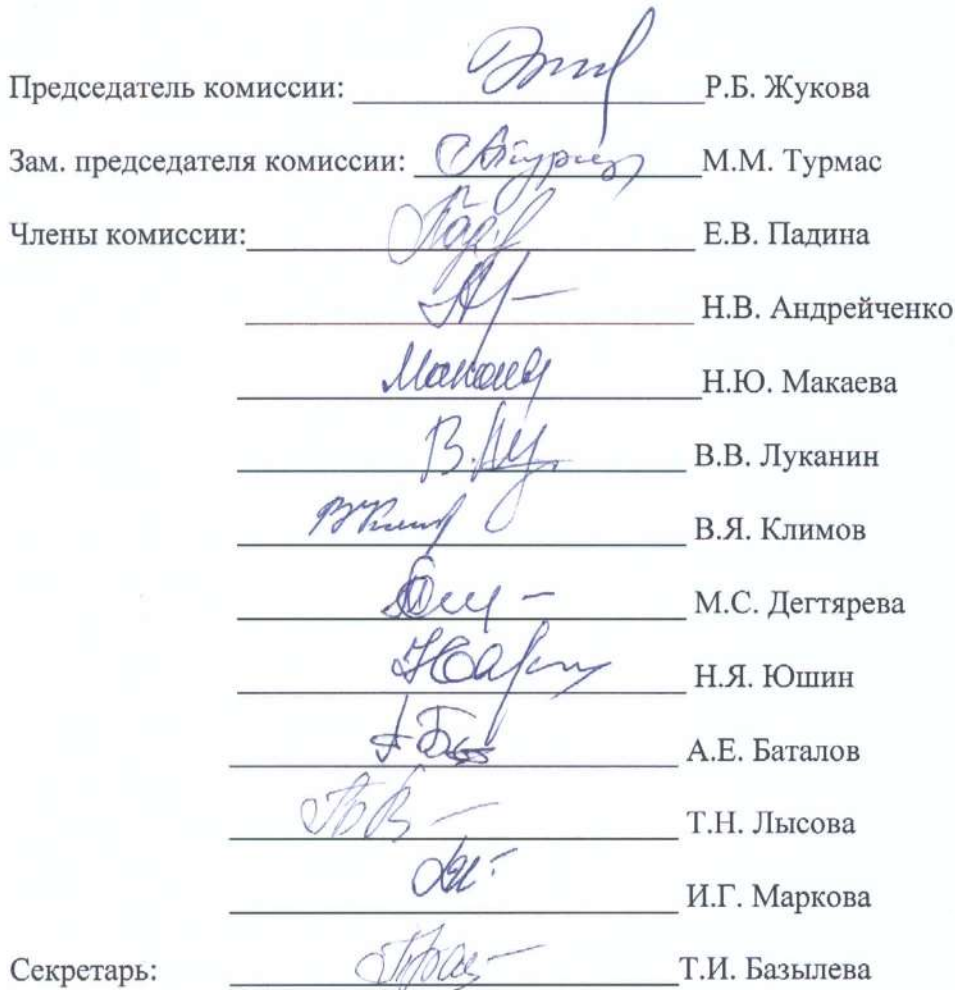 Председатель комиссии: Р.Б. Жукова
Зам. председателя комиссии: М.М. Турмас
Члены комиссии: Е.В. Падина
Н.В. Андрейченко
Н.Ю. Макаева
В.В. Луканин
В.Я. Климов
М.С. Дегтярева
Н.Я. Юшин
А.Е. Баталов
Т.Н. Лысова
И.Г. Маркова
Секретарь: Т.И. Базылева